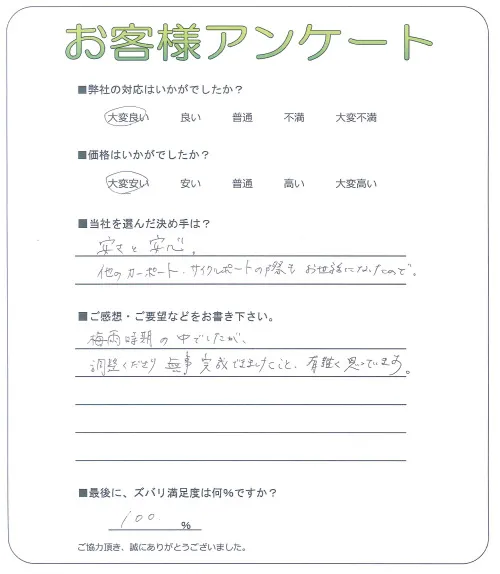 お客様アンケート
■弊社の対応はいかがでしたか？
大変良い 良い 普通 不満 大変不満
■価格はいかがでしたか？
大変安い 安い 普通 高い 大変高い
■当社を選んだ決め手は？
安さと安心。
他のカーポート、サイクルポートの際もお世話になったので。
■ご感想・ご要望などをお書き下さい。
梅雨時期の中でしたが、
調整くださり無事完成できましたこと、有難く思っています。
■最後に、ズバリ満足度は何%ですか？
100 %
ご協力頂き、誠にありがとうございました。